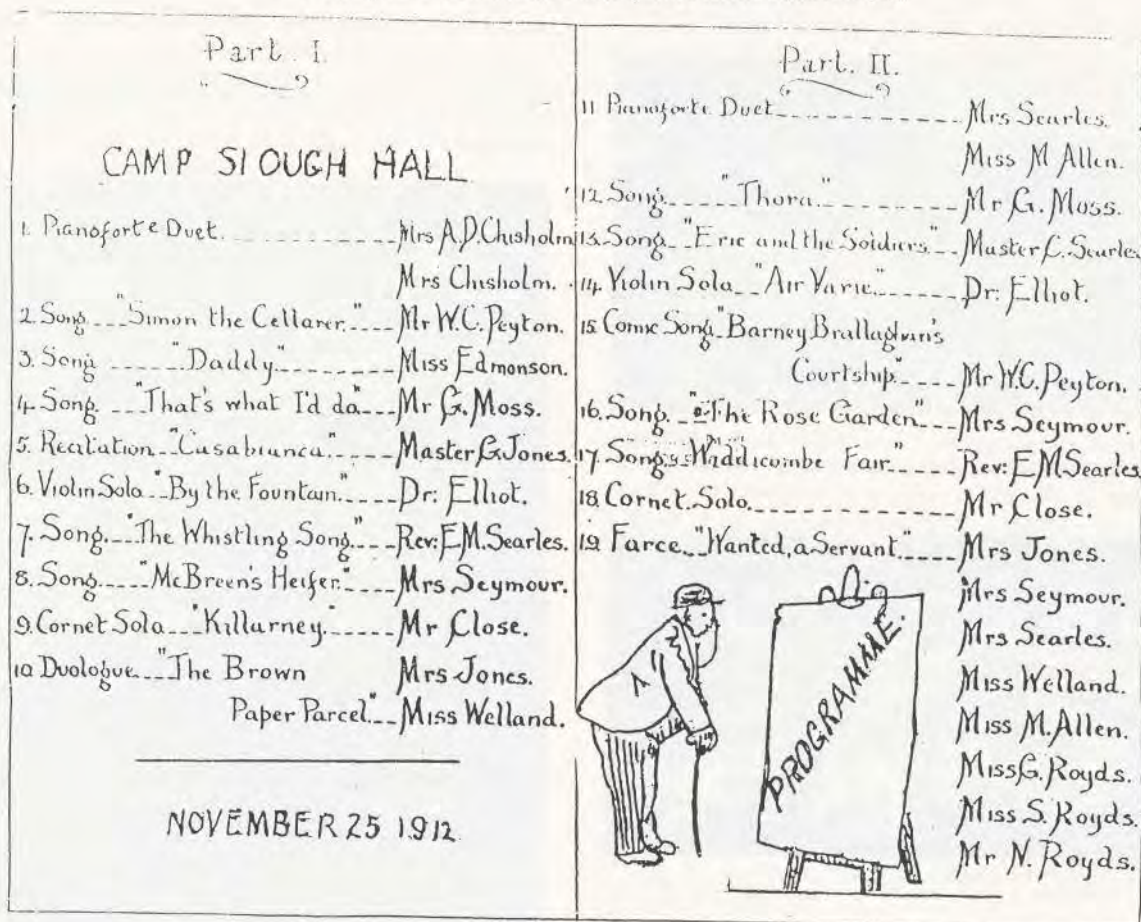 Part. I.
CAMP SLOUGH HALL
1. Pianoforte Duet. Mrs A.D. Chisholm
Mrs Chisholm.
2. Song "Simon the Cellarer." Mr W.C. Peyton.
3. Song "Daddy" Miss Edmonson.
4. Song. "That's what I'd do" Mr G. Moss.
5. Recitation "Casabianca" Master G. Jones.
6. Violin Solo "By the Fountain." Dr: Elliot.
7. Song. "The Whistling Song" Rev: E.M. Searles.
8. Song "McBreen's Heifer." Mrs Seymour.
9. Cornet Solo "Killarney." Mr Close.
10 Duologue "The Brown Mrs Jones.
Paper Parcel" Miss Welland.
NOVEMBER 25 1912
Part. II.
11 Pianoforte Duet Mrs Searles.
Miss M Allen.
12 Song. "Thora." Mr G. Moss.
13. Song. "Eric and the Soldiers" Master C. Searles
14. Violin Solo "Air Varie." Dr: Elliot.
15. Comic Song "Barney Brallaghan's
Courtship." Mr W.C. Peyton.
16. Song. "The Rose Garden" Mrs Seymour.
17. Song "Widdicombe Fair" Rev: E.M Searles
18. Cornet. Solo. Mr Close.
19. Farce. "Wanted, a Servant." Mrs Jones.
Mrs Seymour.
Mrs Searles.
Miss Welland.
Miss M. Allen.
Miss G. Royds.
Miss S. Royds.
Mr N. Royds.
PROGRAMME.